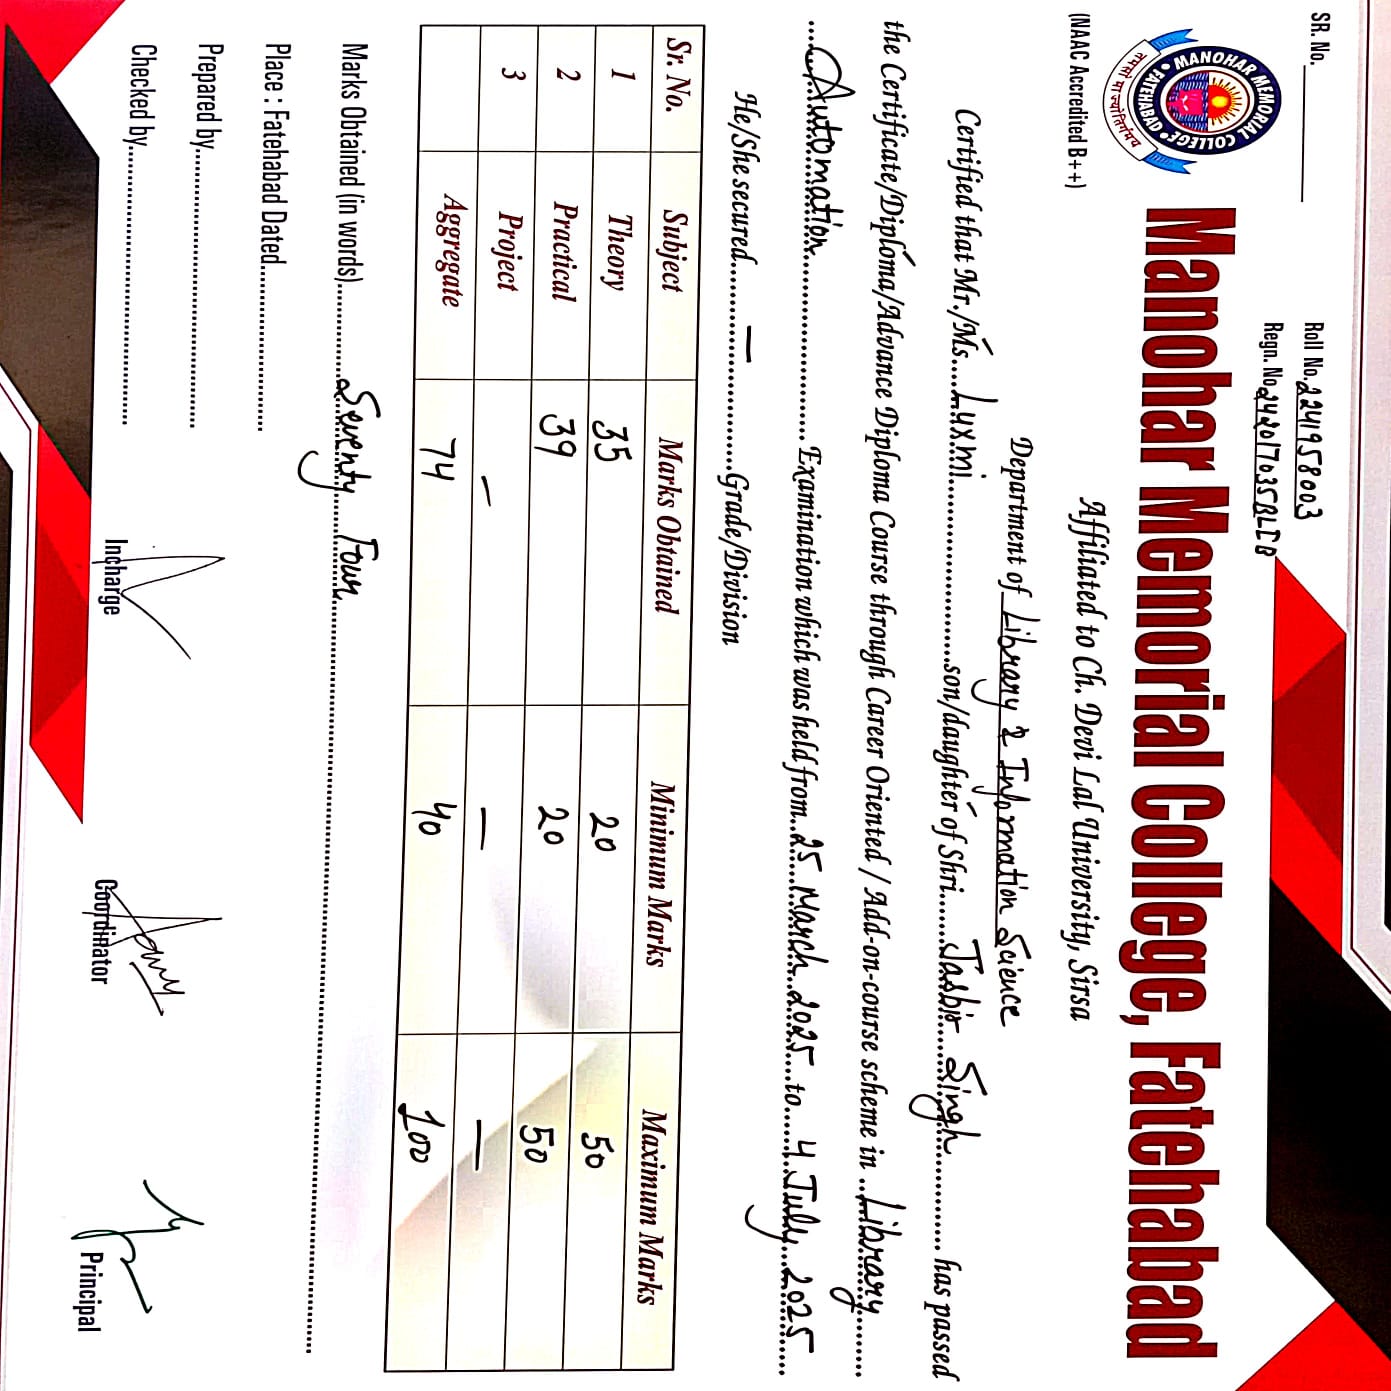 SR. No.
Roll No. 2241958003
Regn. No. 242017035BLIB
MANOHAR MEMORIAL COLLEGE
FATEHABAD
तमसो मा ज्योतिर्गमय
(NAAC Accredited B++)
Manohar Memorial College, Fatehabad
Affiliated to Ch. Devi Lal University, Sirsa
Department of Library & Information Science
Certified that Mr./Ms....Luxmi....son/daughter of Shri....Jasbir Singh....has passed
the Certificate/Diploma/Advance Diploma Course through Career Oriented / Add-on-course scheme in ..Library....
....Automation.... Examination which was held from..25 March 2025...to....4 July 2025....
He/She secured....—....Grade/Division
Sr. No. Subject Marks Obtained Minimum Marks Maximum Marks
1 Theory 35 20 50
2 Practical 39 20 50
3 Project — — —
Aggregate 74 40 100
Marks Obtained (in words)....Seventy Four....
Place : Fatehabad Dated....
Prepared by....
Checked by....
Incharge Coordinator Principal